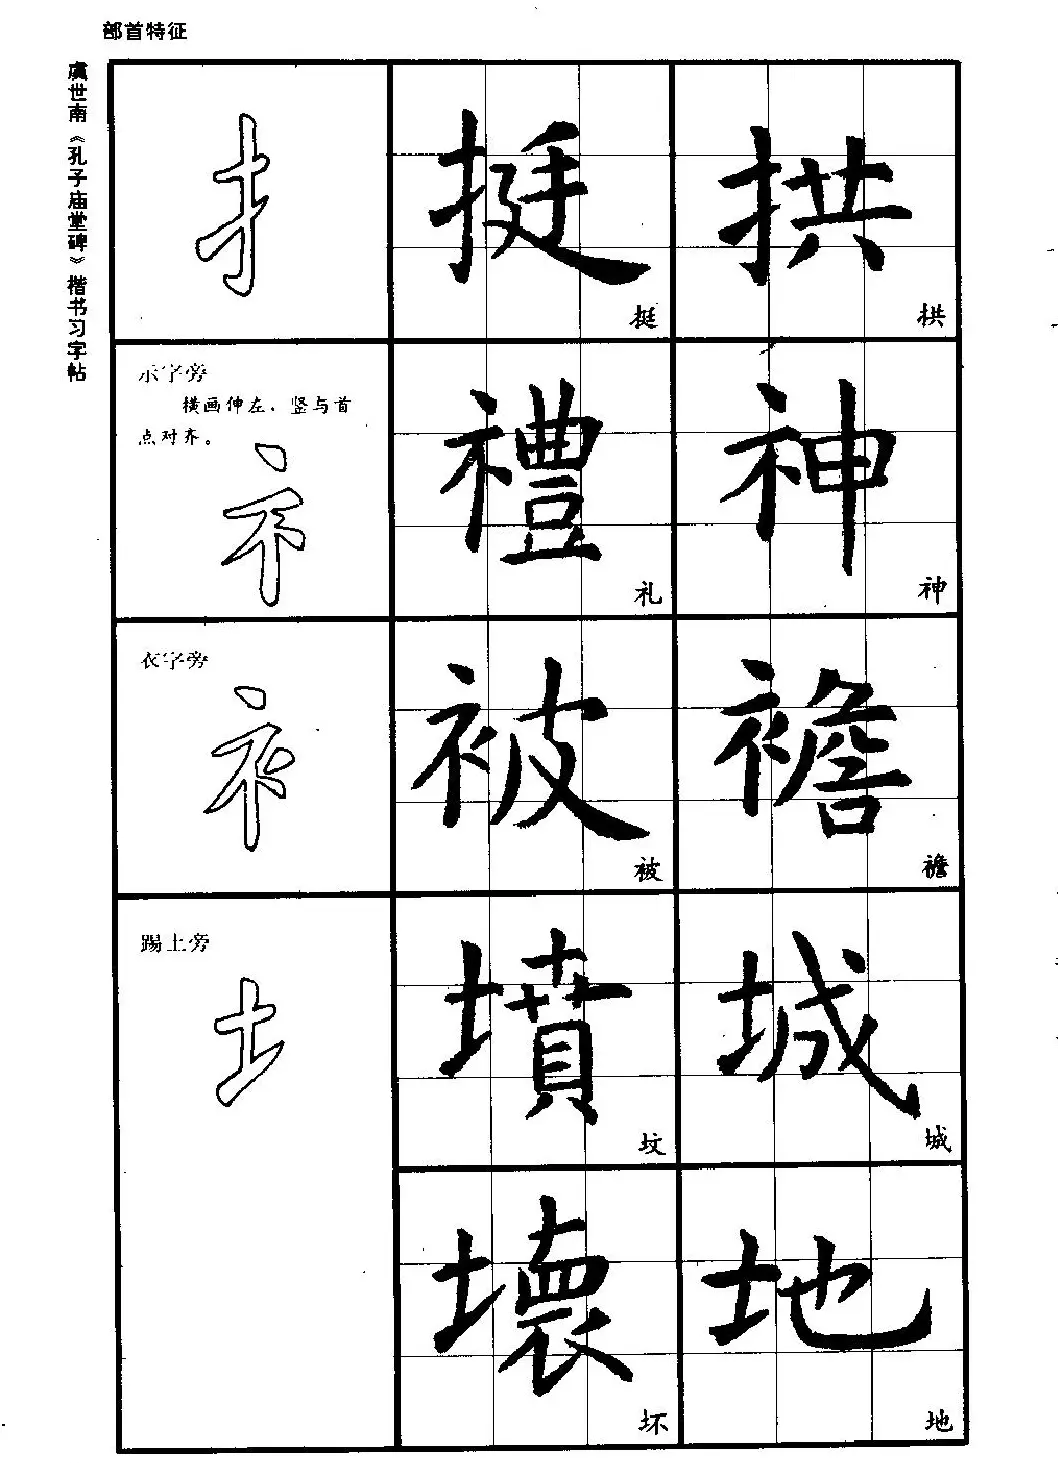 部首特征
虞世南《孔子庙堂碑》楷书习字帖
扌
挺
挺
拱
拱
示字旁
横画伸左，竖与首
点对齐。
礻
禮
礼
神
神
衣字旁
衤
被
被
襜
襜
踢土旁
土
墳
坟
城
城
壞
坏
地
地